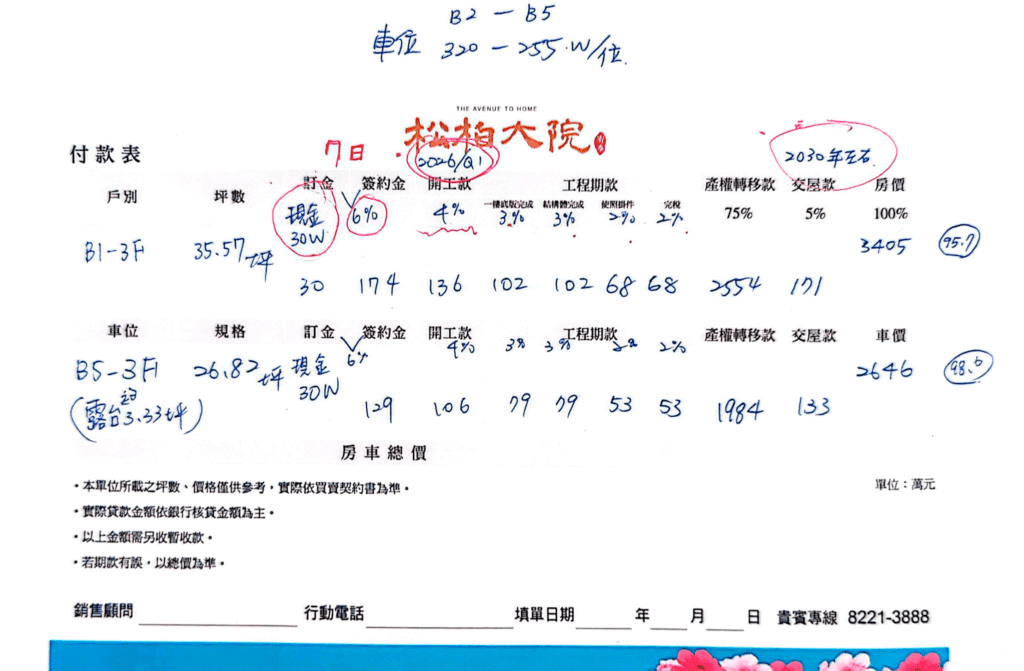 B2 － B5
車位 320 － 255.W/位.
THE AVENUE TO HOME
松柏大院
付款表 7日 2026/Q1 2030年左右
戶別 坪數 訂金 簽約金 開工款 工程期款 產權轉移款 交屋款 房價
一樓底版完成 結構體完成 使照掛件 完稅
現金30W 6% 4% 3% 3% 2% 2% 75% 5% 100%
B1-3F 35.57坪 3405 95.7
30 174 136 102 102 68 68 2554 171
車位 規格 訂金 簽約金 開工款 工程期款 產權轉移款 交屋款 車價
6% 4% 3% 3% 2% 2%
B5-3F 26.82坪 現金30W 2646 98.6
(露台3.33坪) 129 106 79 79 53 53 1984 133
房車總價
•本單位所載之坪數、價格僅供參考，實際依買賣契約書為準。 單位：萬元
•實際貸款金額依銀行核貸金額為主。
•以上金額需另收暫收款。
•若期款有誤，以總價為準。
銷售顧問 行動電話 填單日期 年 月 日 貴賓專線 8221-3888